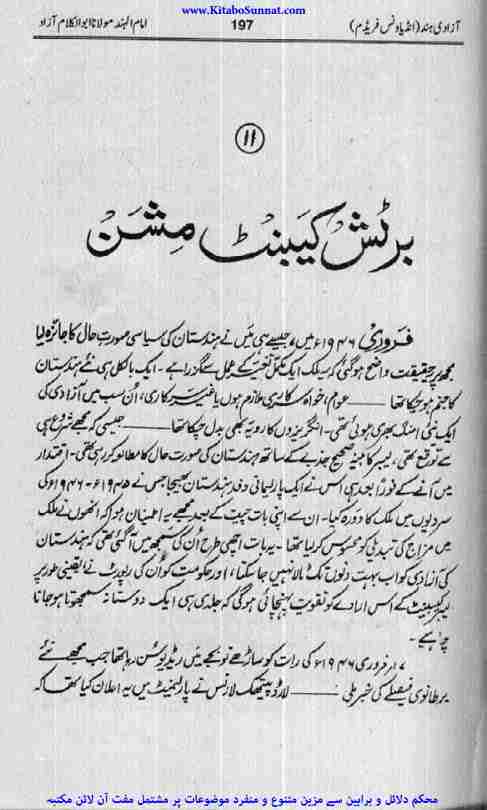 www.KitaboSunnat.com
آزادی ہند (انڈیا ونس فریڈم)
197
امام الہند مولانا ابوالکلام آزاد
۱۱
برٹش کیبنٹ مشن
فروری ۱۹۴۶ء میں، جیسے ہی میں نے ہندستان کی سیاسی صورتِ حال کا جائزہ لیا
مجھ پر حقیقت واضح ہوگئی کہ ملک ایک مکمل تغیّر کے عمل سے گذرا ہے۔ ایک بالکل ہی نئے ہندستان
کا جنم ہو چکا تھا —— عوام، خواہ سرکاری ملازم ہوں یا غیر سرکاری، اُن سب میں آزادی کی
ایک نئی امنگ بھری ہوئی تھی۔ انگریزوں کا رویہ بھی بدل چکا تھا —— جیسی کہ مجھے شروع ہی
سے توقع تھی، لیبر کابینہ صحیح جذبے کے ساتھ ہندستان کی صورت حال کا مطالعہ کر رہی تھی۔ اقتدار
میں آنے کے فوراً بعد ہی اس نے ایک پارلیمانی وفد ہندستان بھیجا جس نے ۱۹۴۵ء-۱۹۴۶ء کی
سردیوں میں ملک کا دورہ کیا۔ ان سے اپنی بات چیت کے بعد مجھے یہ اطمینان ہوا کہ انھوں نے ملک
میں مزاج کی تبدیلی کو محسوس کر لیا تھا۔ یہ بات اچھی طرح اُن کی سمجھ میں آگئی تھی کہ ہندستان
کی آزادی کو اب بہت دنوں تک ٹالا نہیں جا سکتا، اور حکومت کو اُن کی رپورٹ نے یقینی طور پر
لیبر کیبنٹ کے اس ارادے کو تقویت پہنچائی ہوگی کہ جلد ہی ایک دوستانہ سمجھوتا ہو جانا
چاہیے۔
۱۷ فروری ۱۹۴۶ء کی رات کو ساڑھے نو بجے میں ریڈیو سُن رہا تھا جب مجھے نئے
برطانوی فیصلے کی خبر ملی —— لارڈ پیتھک لارنس نے پارلیمنٹ میں یہ اعلان کیا تھا کہ
محکم دلائل و براہین سے مزین متنوع و منفرد موضوعات پر مشتمل مفت آن لائن مکتبہ